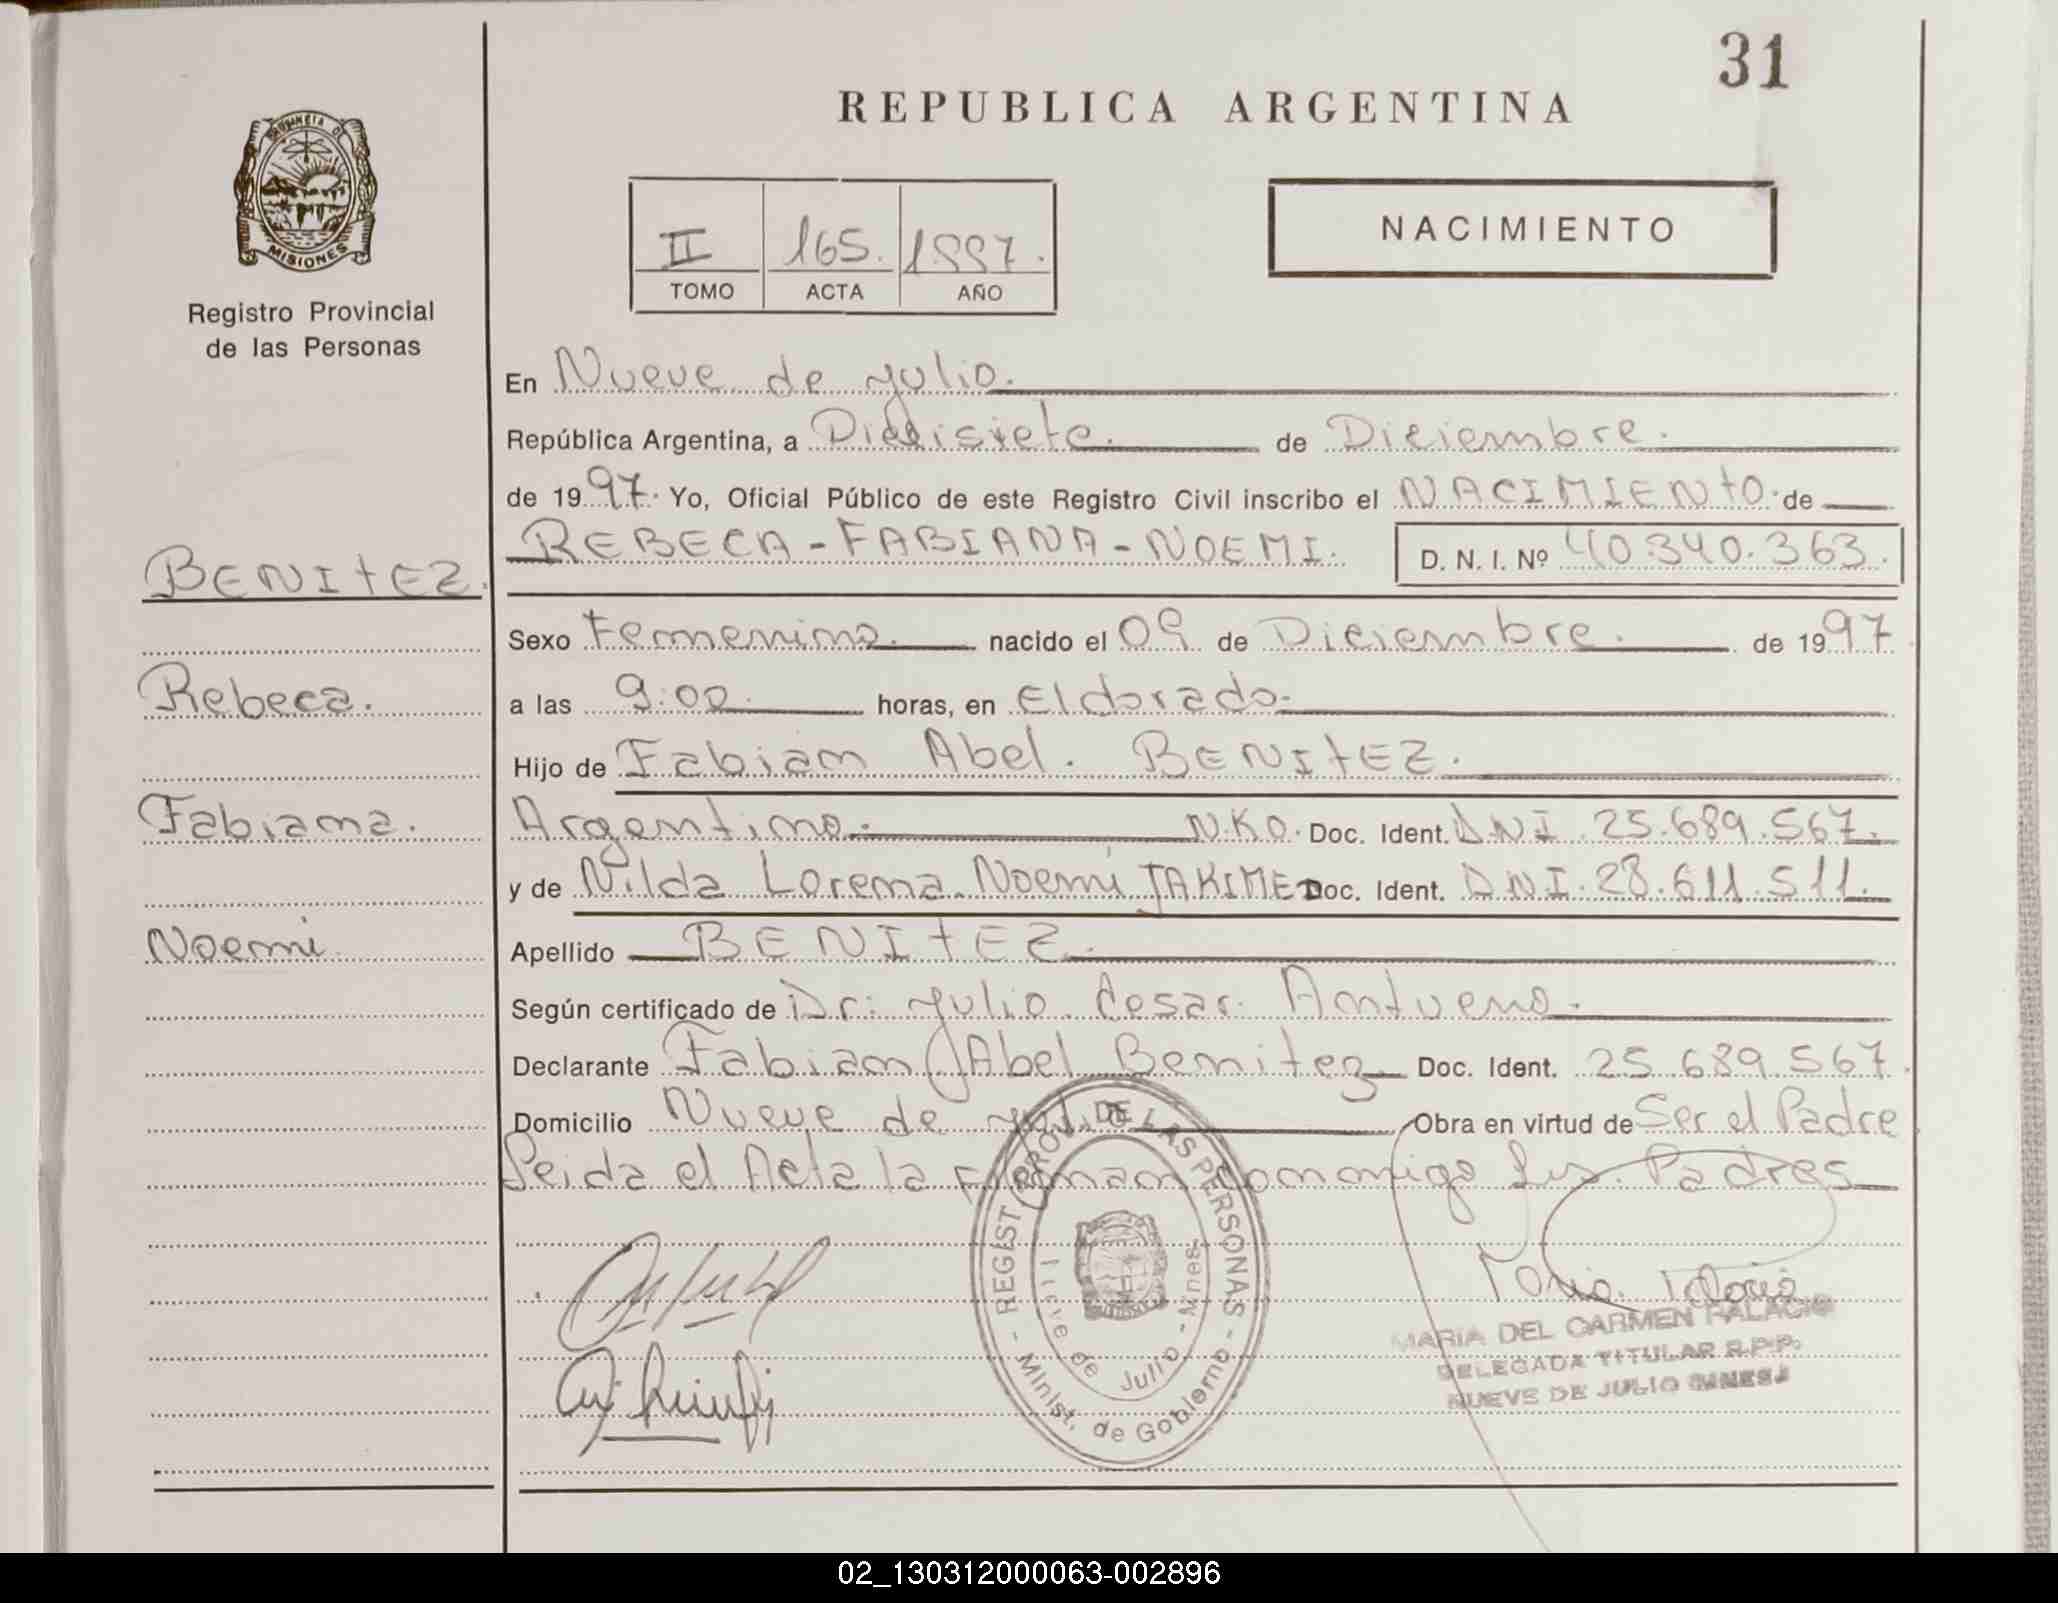 31
REPUBLICA ARGENTINA
PROVINCIA D
MISIONES
Registro Provincial
de las Personas
II 165. 1997.
TOMO ACTA AÑO
NACIMIENTO
En Nueve de Julio.
República Argentina, a Diecisiete. de Diciembre.
de 1997. Yo, Oficial Público de este Registro Civil inscribo el NACIMIENTO. de
REBECA-FABIANA-NOEMI. D. N. I. Nº 40.340.363.
BENITEZ.
Sexo Femenino. nacido el 09 de Diciembre. de 1997.
Rebeca.
a las 9:00. horas, en Eldorado.
Hijo de Fabian Abel. BENITEZ.
Fabiana.
Argentino. N.K.O. Doc. Ident. DNI. 25.689.567.
y de Nilda Lorena. Noemi TAKIME Doc. Ident. DNI. 28.611.511.
Noemi
Apellido BENITEZ.
Según certificado de Dr: Julio. Cesar. Antueno.
Declarante Fabian Abel Benitez Doc. Ident. 25.689.567.
Domicilio Nueve de Julio Obra en virtud de Ser el Padre
Leida el Acta la Firman conmigo Sus. Padres
- REGIST. PROV. DE LAS PERSONAS -
Minist. de Gobierno
Nueve de Julio - Mnes.
MARIA DEL CARMEN PALACIO
DELEGADA TITULAR R.P.P.
NUEVE DE JULIO (MNES.)
02_130312000063-002896